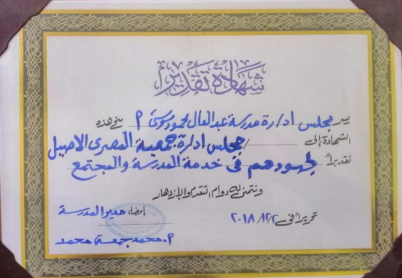 شهادة تقدير
يسر مجلس ادارة مدرسة عبد العال محمود م منح هذه
الشهادة إلى / مجلس ادارة جمعية المصرى الاصيل
تقديراً لجهودهم فى خدمة المدرسة والمجتمع
ونتمنى له دوام التقدم والإزدهار
تحريراً فى ٢٠١٨/١٢/٢ إمضاء مدير المدرسة
م. محمد جمعة محمد